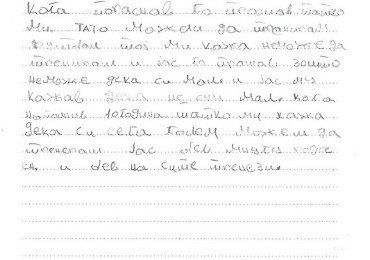 Кога пораснав го прашав татко
ми тато можеш да тренирам
фудбал тој ми кажа неможе да
тренирам и јас го прашав зошто
неможе дека си мал и јас му
кажав дека не сум мал кога
наполнив 10година татко ми кажа
дека си сега голем можеш да
тренераш јас бев многу
си и бев на суте тренези